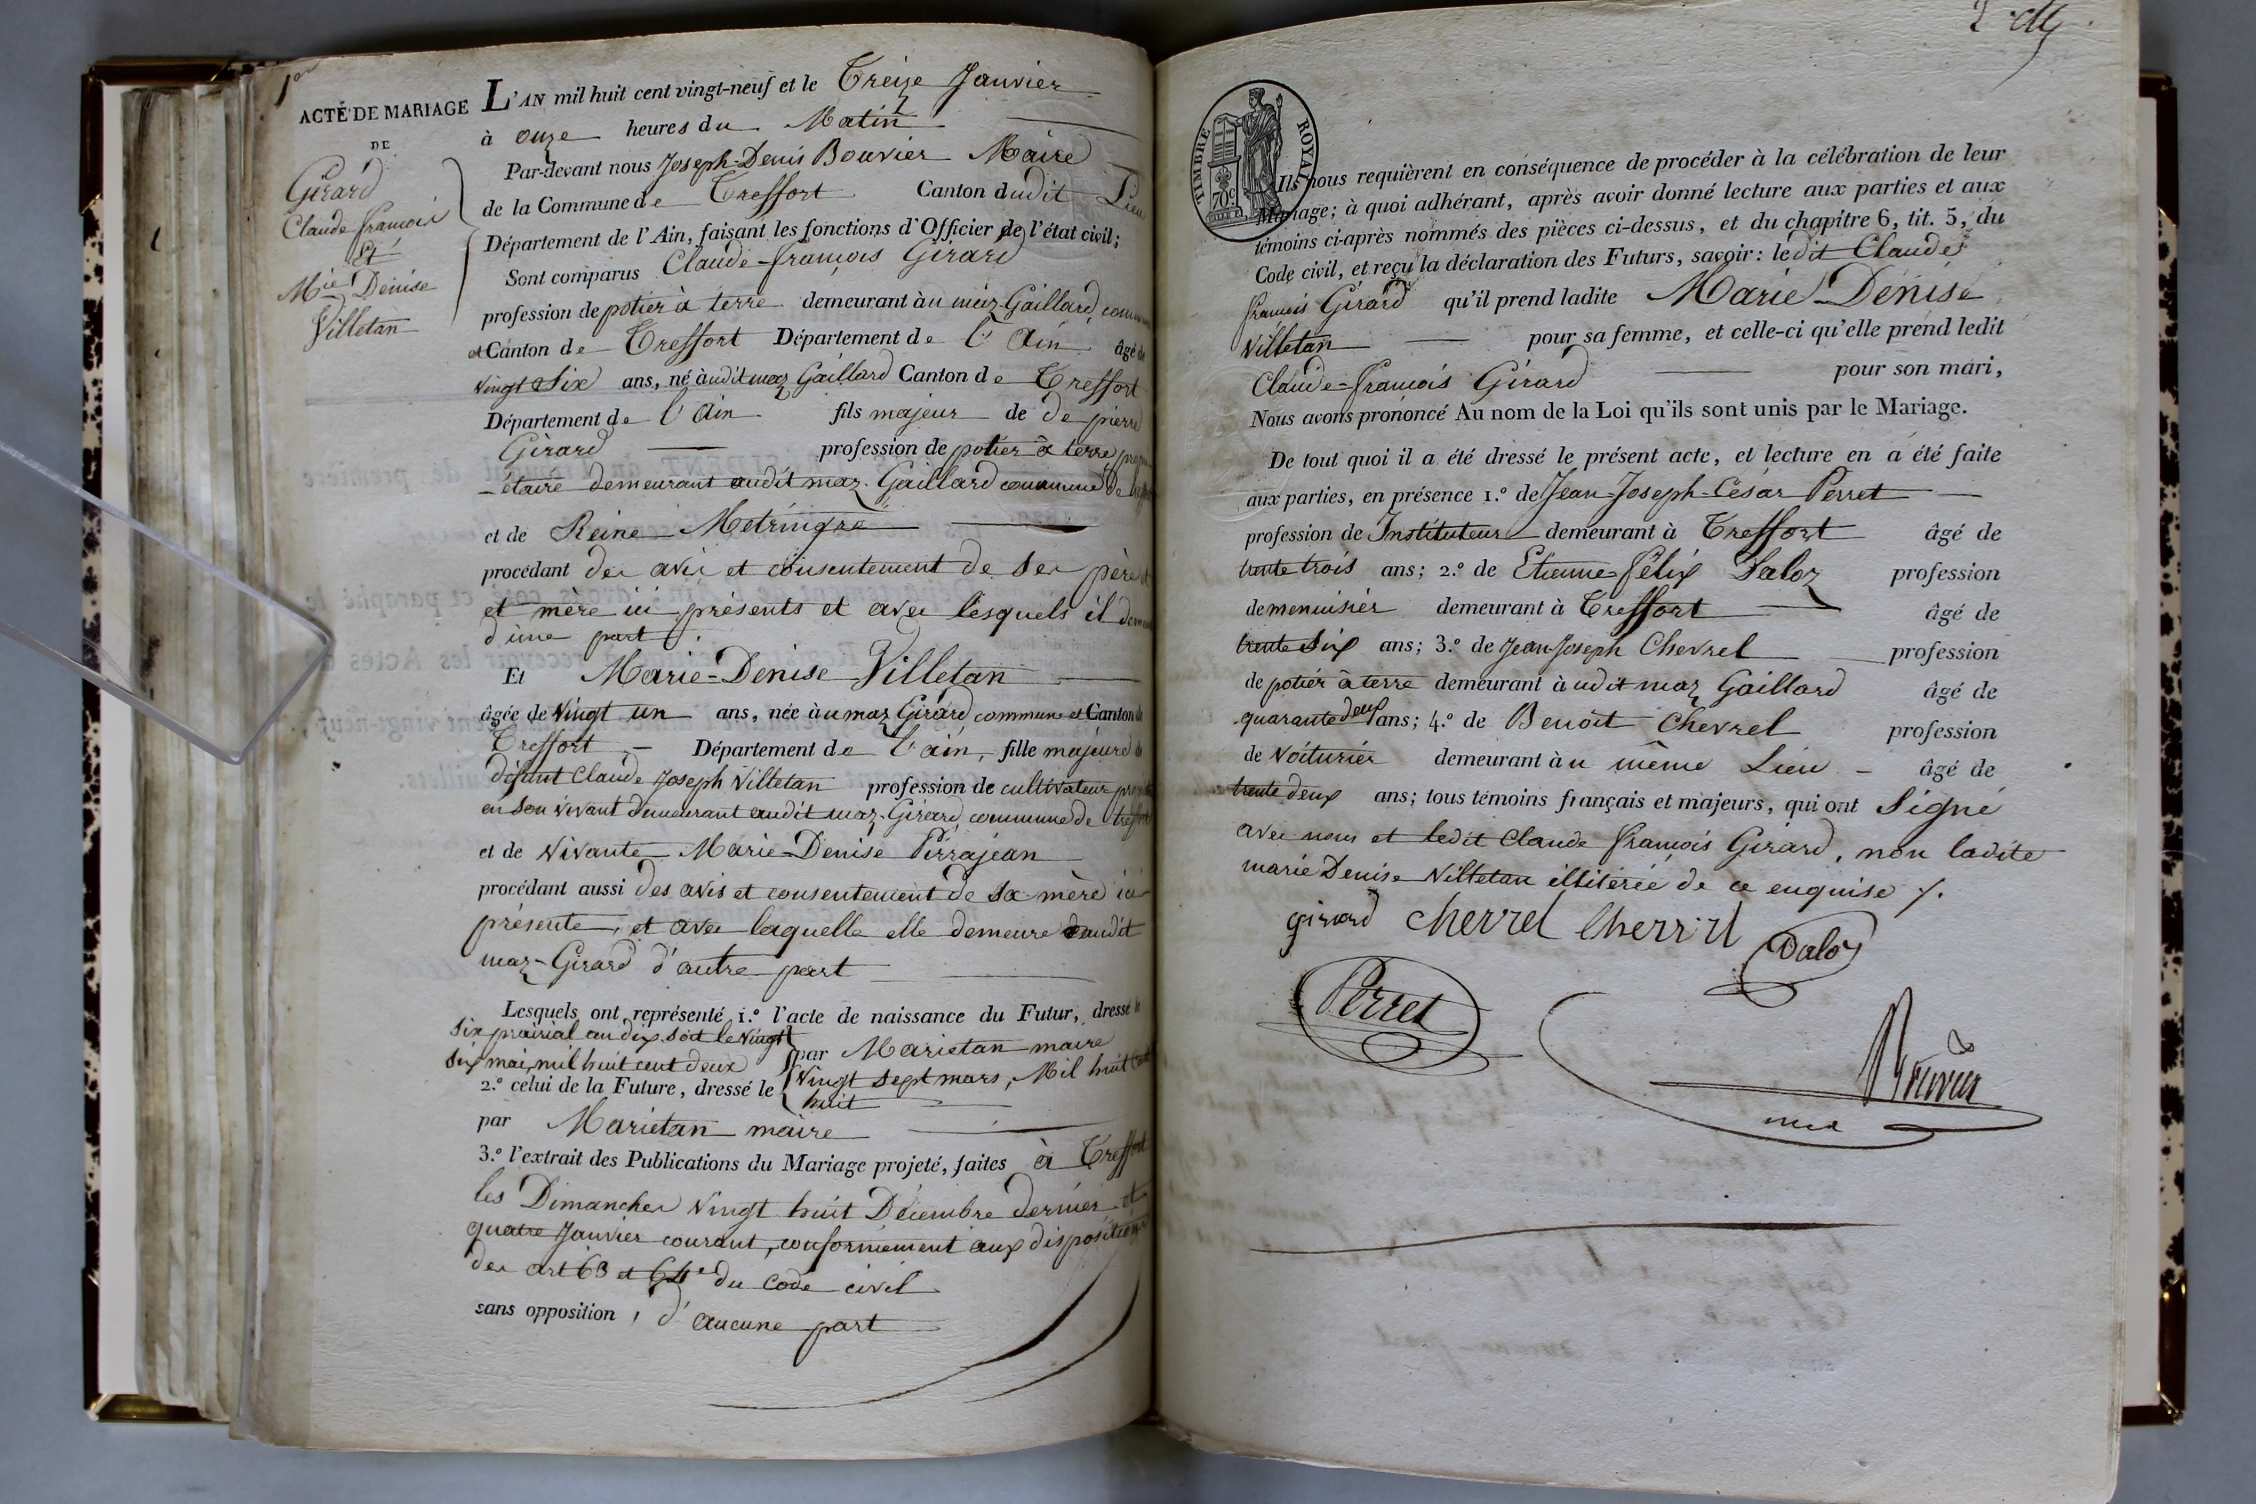 1er
ACTE DE MARIAGE
DE
Girard
Claude françois
Et
Mie Denise
Villetan
L'AN mil huit cent vingt-neuf et le Treize Janvier
à onze heures du Matin
Par-devant nous Joseph-Denis Bouvier Maire
de la Commune de Treffort Canton dudit Lieu
Département de l'Ain, faisant les fonctions d'Officier de l'état civil;
Sont comparus Claude-françois Girard
profession de potier à terre demeurant àu maz Gaillard, commune
et Canton de Treffort Département de l'Ain âgé de
vingt Six ans, né àudit maz Gaillard Canton de Treffort
Département de l'Ain fils majeur de de pierre
Girard profession de potier à terre propri
-étaire demeurant audit maz Gaillard commune de treffort
et de Reine Metringre
procédant des avis et consentement de Ses père et
et mère ici présents et avec lesquels il demeure
d'une part
Et Marie-Denise Villetan
âgée de vingt un ans, née àu maz Girard commune et Canton de
Treffort Département de l'ain, fille majeure de
défunt Claude Joseph Villetan profession de cultivateur propre
en son vivant demeurant audit maz-Girard commune de treffort
et de vivante Marie-Denise Pirrajean
procédant aussi des avis et consentement de sa mère ici
présente, et avec laquelle elle demeure audit
maz-Girard d'autre part
Lesquels ont représenté 1.º l'acte de naissance du Futur, dressé le
six prairial an dix soit le vingt
six mai, mil huit cent deux par Marietan maire
2.º celui de la Future, dressé le vingt sept mars, Mil huit cent
huit
par Marietan maire
3.º l'extrait des Publications du Mariage projeté, faites à Treffort
les Dimanches vingt huit Décembre dernier et
quatre Janvier courant, conformément aux dispositions
des art 63 et 64e du code civil
sans opposition, d'aucune part
TIMBRE ROYAL
70c.
Ils nous requièrent en conséquence de procéder à la célébration de leur
Mariage; à quoi adhérant, après avoir donné lecture aux parties et aux
témoins ci-après nommés des pièces ci-dessus, et du chapitre 6, tit. 5, du
Code civil, et reçu la déclaration des Futurs, savoir: ledit Claude
françois Girard qu'il prend ladite Marie Denise
Villetan pour sa femme, et celle-ci qu'elle prend ledit
Claude-françois Girard pour son mari,
Nous avons prononcé Au nom de la Loi qu'ils sont unis par le Mariage.
De tout quoi il a été dressé le présent acte, et lecture en a été faite
aux parties, en présence 1.º de Jean-Joseph-César Perret
profession de Instituteur demeurant à Treffort âgé de
trente trois ans; 2.º de Etienne-félix Daloz profession
de menuisier demeurant à Treffort âgé de
trente Six ans; 3.º de Jean-Joseph Chevrel profession
de potier à terre demeurant àudit maz Gaillard âgé de
quarante deux ans; 4.º de Benoit Chevrel profession
de voiturier demeurant àu même Lieu âgé de
trente deux ans; tous témoins français et majeurs, qui ont Signé
avec nous et ledit Claude françois Girard, non ladite
marie Denise Villetan illitérée de ce enquise /.
girard chevrel Chevril Daloz
Perret
Bouvier